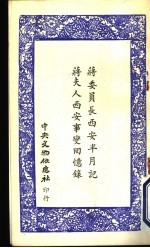 蔣委員長西安半月記
蔣夫人西安事變回憶錄
中央文物供應社
印行